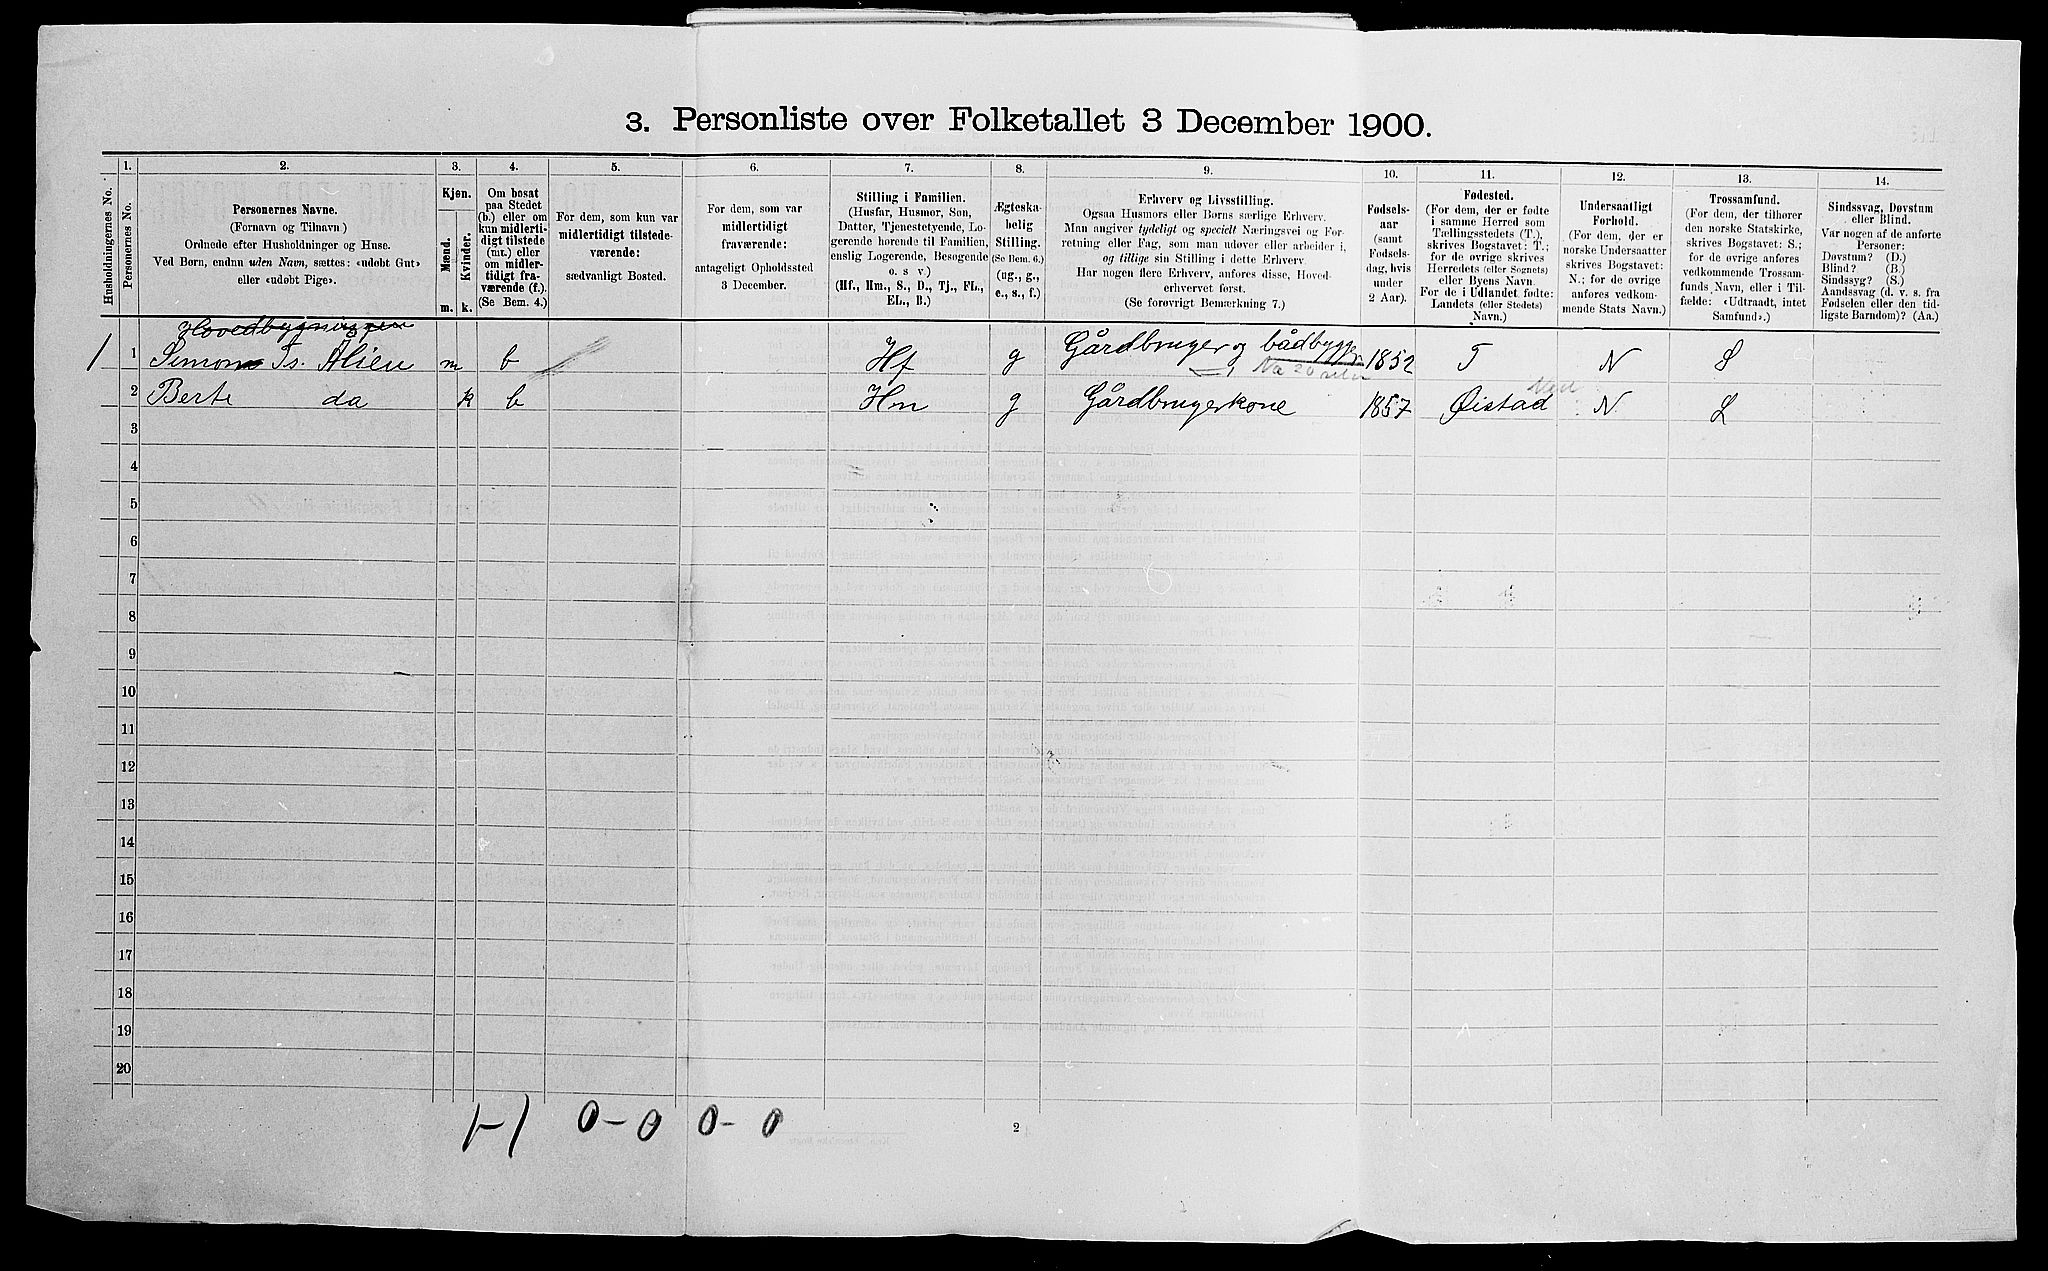 3. Personliste over Folketallet 3 December 1900.
Husholdningernes No.
1.
Personernes No.
2.
Personernes Navne.
(Fornavn og Tilnavn)
Ordnede efter Husholdninger og Huse.
Ved Børn, endnu uden Navn, sættes: «udøbt Gut»
eller «udøbt Pige».
3.
Kjøn.
Mænd.
Kvinder.
m. k.
4.
Om bosat
paa Stedet
(b.) eller om
kun midlerti-
digt tilstede
(mt.) eller
om midler-
tidigt fra-
værende (f.).
(Se Bem. 4.)
5.
For dem, som kun var
midlertidigt tilstede-
værende:
sædvanligt Bosted.
6.
For dem, som var
midlertidigt
fraværende:
antageligt Opholdssted
3 December.
7.
Stilling i Familien.
(Husfar, Husmor, Søn,
Datter, Tjenestetyende, Lo-
gerende hørende til Familien,
enslig Logerende, Besøgende
o. s v.)
(Hf., Hm., S., D., Tj., FL.,
EL., B.)
8.
Ægteska-
belig
Stilling.
(Se Bem. 6.)
(ug., g.,
e., s., f.)
9.
Erhverv og Livsstilling.
Ogsaa Husmors eller Børns særlige Erhverv.
Man angiver tydeligt og specielt Næringsvei og For-
retning eller Fag, som man udøver eller arbeider i,
og tillige sin Stilling i dette Erhverv.
Har nogen flere Erhverv, anføres disse, Hoved-
erhvervet først.
(Se forøvrigt Bemærkning 7.)
10.
Fødsels-
aar
(samt
Fødsels-
dag, hvis
under
2 Aar).
11.
Fødested.
(For dem, der er fødte
i samme Herred som
Tællingsstedets (T.),
skrives Bogstavet: T.;
for de øvrige skrives
Herredets (eller Sognets)
eller Byens Navn.
For de i Udlandet fødte:
Landets (eller Stedets)
Navn.)
12.
Undersaatligt
Forhold.
(For dem, der er
norske Undersaatter
skrives Bogstavet:
N.; for de øvrige
anføres vedkom-
mende Stats Navn.)
13.
Trossamfund.
(For dem, der tilhører
den norske Statskirke,
skrives Bogstav: S.;
for de øvrige anføres
vedkommende Trossam-
funds Navn, eller i Til-
fælde: «Udtraadt, intet
Samfund».)
14.
Sindssvag, Døvstum
eller Blind.
Var nogen af de anførte
Personer:
Døvstum? (D.)
Blind? (B.)
Sindssyg? (S.)
Aandssvag (d. v. s. fra
Fødselen eller den tid-
ligste Barndom)? (Aa.)
Hovedbygningen
1 1 Simon Ts. Alien m b Hf g Gårdbruger og bådbygger 1852 T N S
2 Berte da k b Hm g Gårdbrugerkone 1857 Øistad N S
3
4
5
6
7
8
9
10
11
12
13
14
15
16
17
18
19
20
1-1 0-0 0-0
2